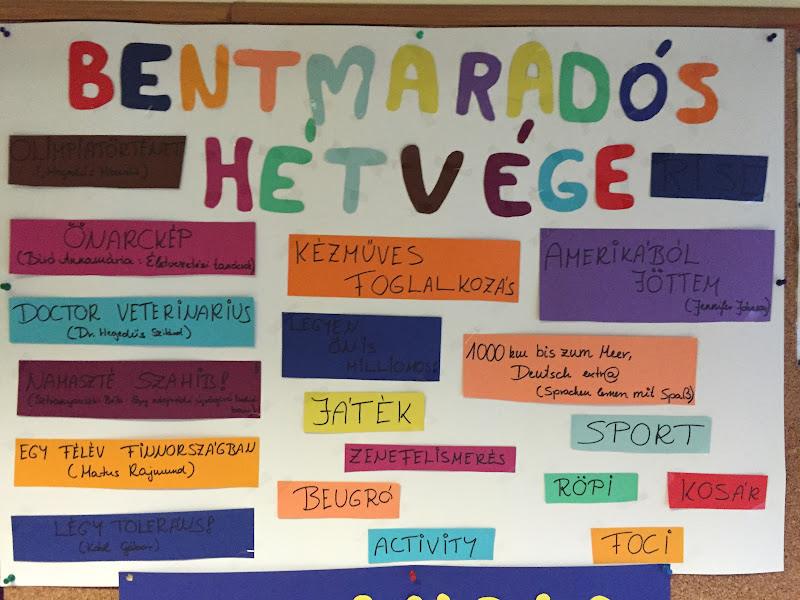 BENTMARADÓS
HÉTVÉGE
OLIMPIATÖRTÉNET
RISE
ÖNARCKÉP
(Bíró Annamária: Életvezetési tanácsok)
KÉZMŰVES
FOGLALKOZÁS
AMERIKÁBÓL
JÖTTEM
(Jennifer
DOCTOR VETERINARIUS
(Dr. Hegedűs Szilárd)
LEGYEN
ÖN IS
MILLIOMOS!
1000 km bis zum Meer,
Deutsch extr@
(Sprachen lernen mit Spaß)
NAMASZTÉ SZAHIB!
JÁTÉK
SPORT
EGY FÉLÉV FINNORSZÁGBAN
(Matus Rajmund)
ZENEFELISMERÉS
BEUGRÓ
RÖPI
KOSÁR
LÉGY TOLERÁNS!
(Kábl Gábor)
ACTIVITY
FOCI